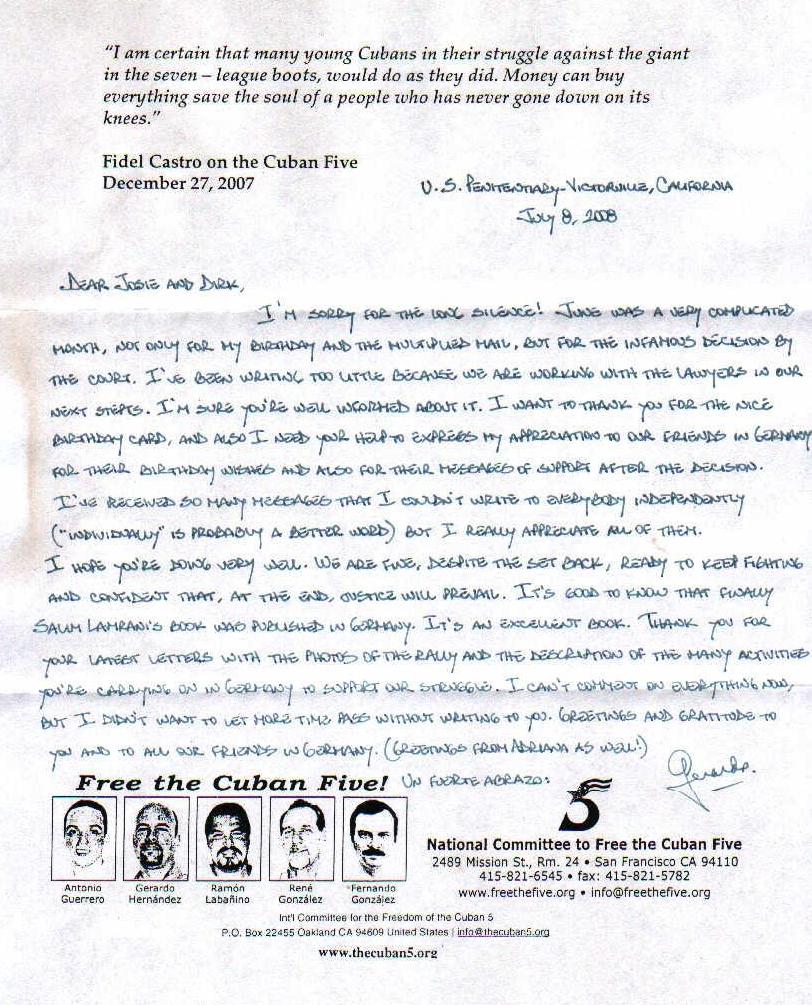 "I am certain that many young Cubans in their struggle against the giant
in the seven – league boots, would do as they did. Money can buy
everything save the soul of a people who has never gone down on its
knees."
Fidel Castro on the Cuban Five
December 27, 2007
U.S. PENITENTIARY-VICTORVILLE, CALIFORNIA
JULY 8, 2008
DEAR JOSIE AND DIRK,
I'M SORRY FOR THE LONG SILENCE! JUNE WAS A VERY COMPLICATED
MONTH, NOT ONLY FOR MY BIRTHDAY AND THE MULTIPLIED MAIL, BUT FOR THE INFAMOUS DECISION BY
THE COURT. I'VE BEEN WRITING TOO LITTLE BECAUSE WE ARE WORKING WITH THE LAWYERS IN OUR
NEXT STEPS. I'M SURE YOU'RE WELL INFORMED ABOUT IT. I WANT TO THANK YOU FOR THE NICE
BIRTHDAY CARD, AND ALSO I NEED YOUR HELP TO EXPRESS MY APPRECIATION TO OUR FRIENDS IN GERMANY
FOR THEIR BIRTHDAY WISHES AND ALSO FOR THEIR MESSAGES OF SUPPORT AFTER THE DECISION.
I'VE RECEIVED SO MANY MESSAGES THAT I COULDN'T WRITE TO EVERYBODY INDEPENDENTLY
("INDIVIDUALLY" IS PROBABLY A BETTER WORD) BUT I REALLY APPRECIATE ALL OF THEM.
I HOPE YOU'RE DOING VERY WELL. WE ARE FINE, DESPITE THE SET BACK, READY TO KEEP FIGHTING
AND CONFIDENT THAT, AT THE END, JUSTICE WILL PREVAIL. IT'S GOOD TO KNOW THAT FINALLY
SALIM LAMRANI'S BOOK WAS PUBLISHED IN GERMANY. IT'S AN EXCELLENT BOOK. THANK YOU FOR
YOUR LATEST LETTERS WITH THE PHOTOS OF THE RALLY AND THE DESCRIPTION OF THE MANY ACTIVITIES
YOU'RE CARRYING ON IN GERMANY TO SUPPORT OUR STRUGGLE. I CAN'T COMMENT ON EVERYTHING NOW,
BUT I DIDN'T WANT TO LET MORE TIME PASS WITHOUT WRITING TO YOU. GREETINGS AND GRATITUDE TO
YOU AND TO ALL OUR FRIENDS IN GERMANY. (GREETINGS FROM ADRIANA AS WELL!)
UN FUERTE ABRAZO:
Gerardo.
Free the Cuban Five!
5
Antonio Guerrero
Gerardo Hernández
Ramón Labañino
René González
Fernando González
National Committee to Free the Cuban Five
2489 Mission St., Rm. 24 • San Francisco CA 94110
415-821-6545 • fax: 415-821-5782
www.freethefive.org • info@freethefive.org
Int'l Committee for the Freedom of the Cuban 5
P.O. Box 22455 Oakland CA 94609 United States | info@thecuban5.org
www.thecuban5.org